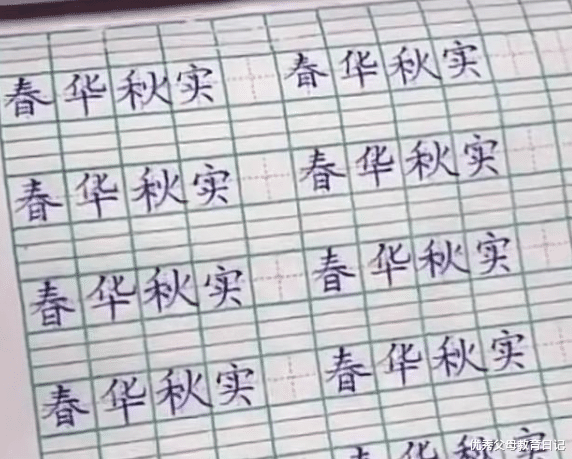 春华秋实 春华秋实
春华秋实 春华秋实
春华秋实 春华秋实
春华秋实 春华秋实
春华秋实
优秀父母教育日记